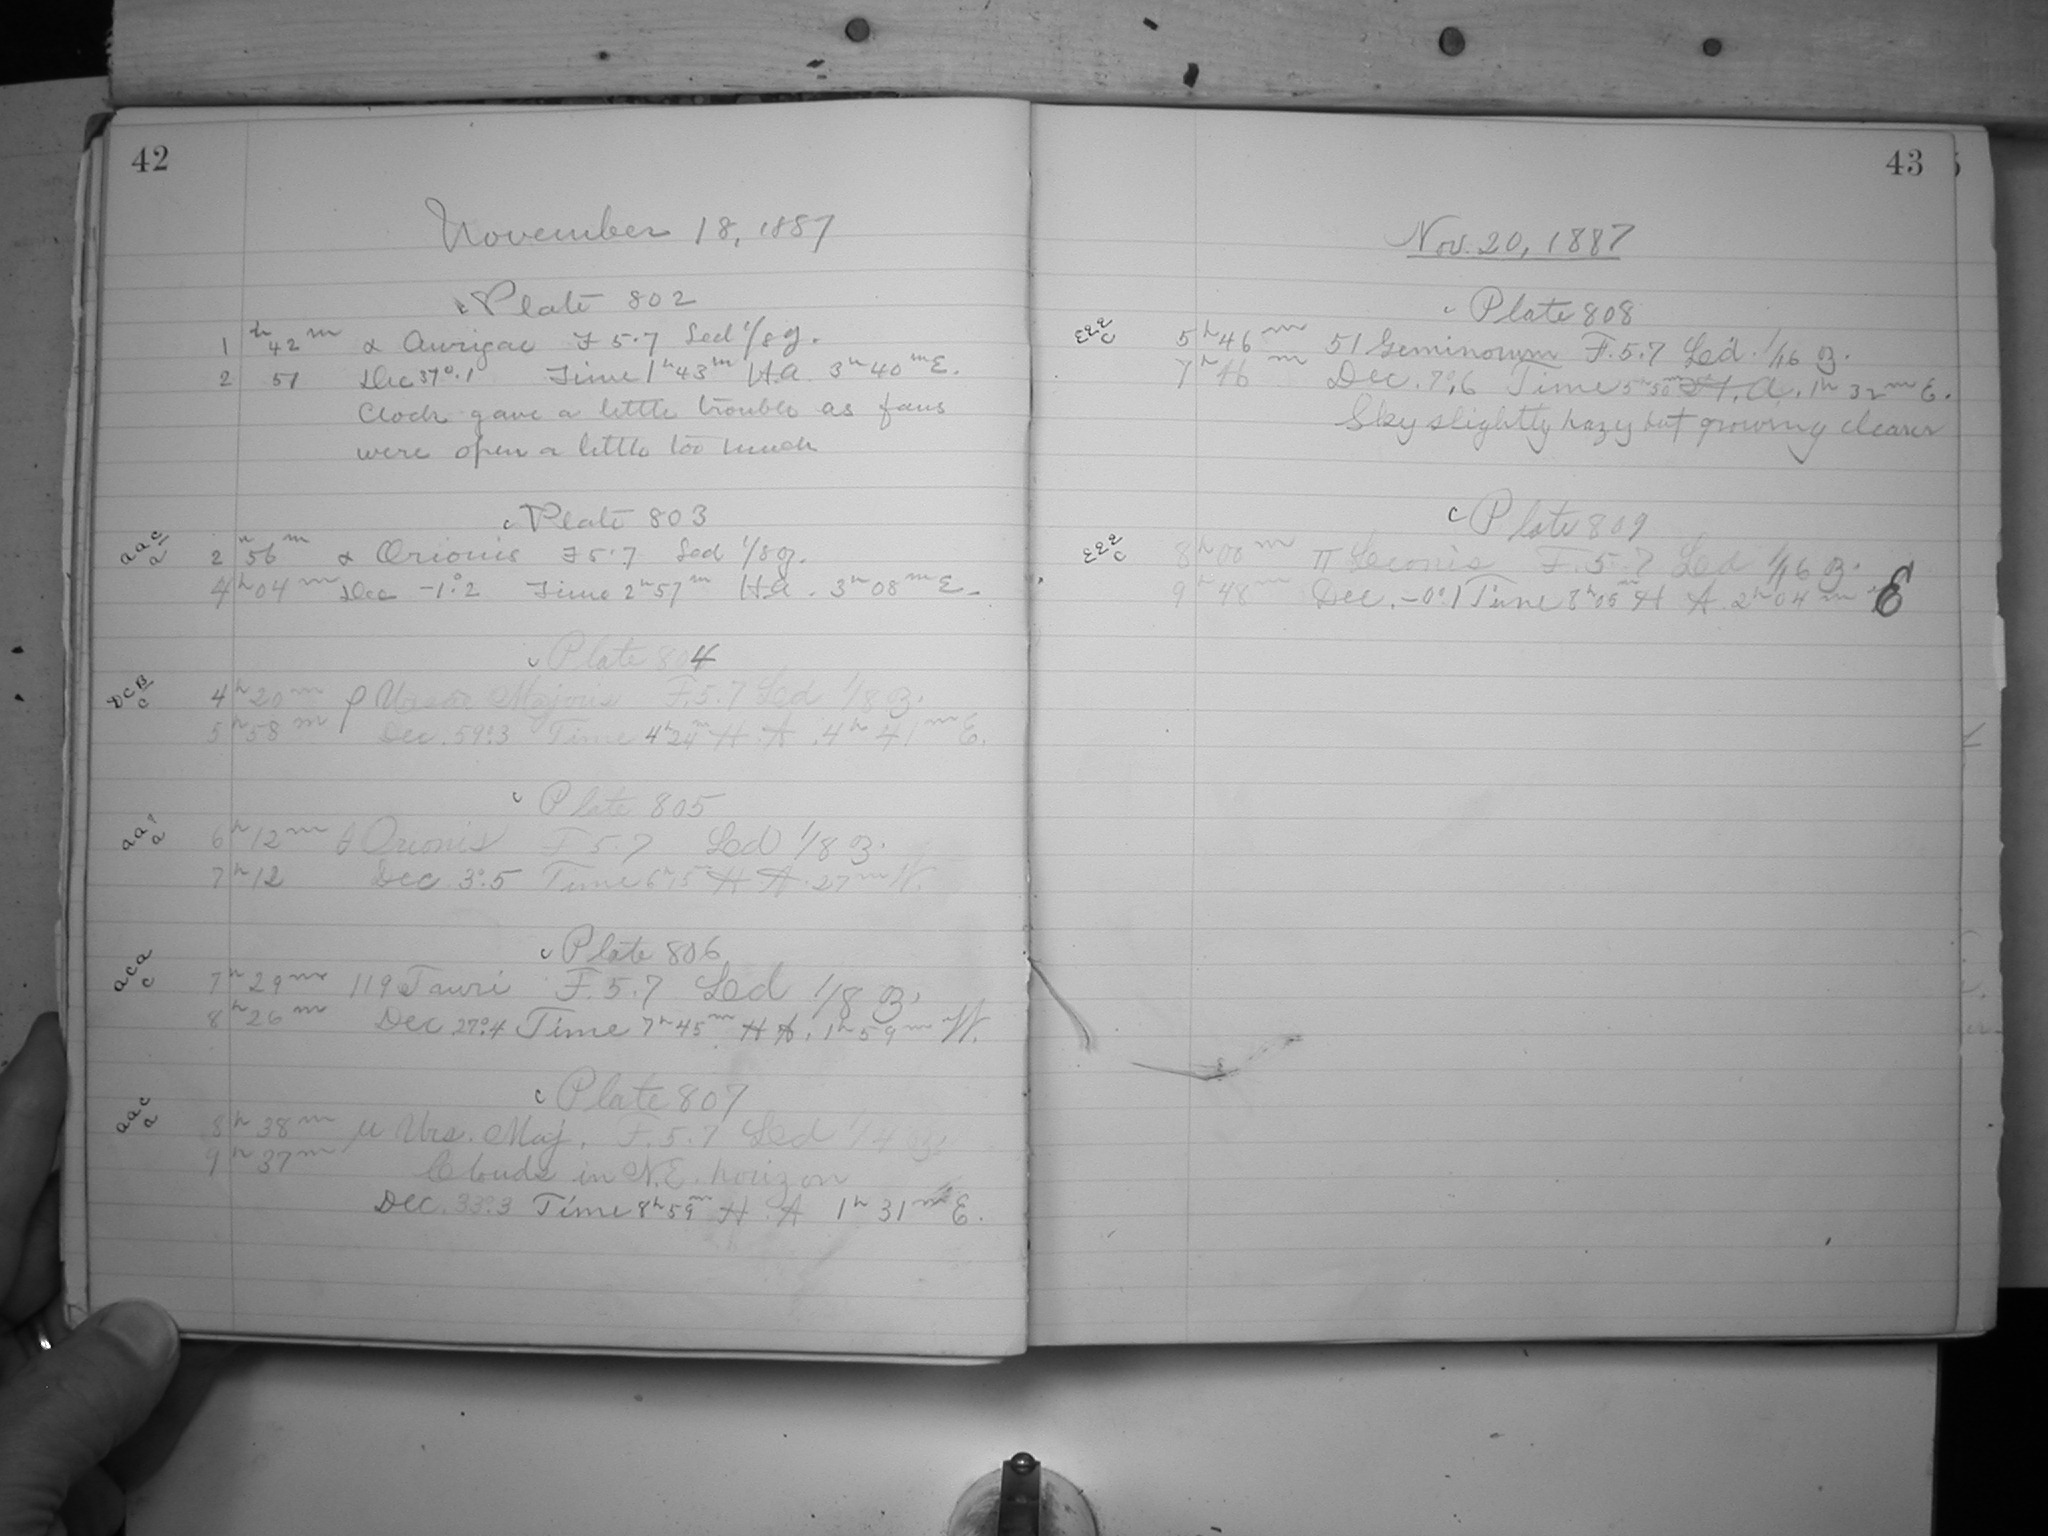 42
November 18, 1887
c Plate 802
1 h 42 m α Aurigae F 5.7 Sed 1/8 g.
2 51 Dec 37°.1 Time 1h 43m H.a. 3h 40m E.
Clock gave a little trouble as fans
were open a little too much
c Plate 803
a a c
a
2 h 56 m α Orionis F 5.7 Sed 1/8 g.
4 h 04 m Dec -1°.2 Time 2h 57m H.a. 3h 08m E.
c Plate 804
D C B
c
4 h 20 m ρ Ursae Majoris F. 5.7 Sed 1/8 g.
5 h 58 m Dec. 59°.3 Time 4h 24m H. A. 4h 41m E.
c Plate 805
a a
a
6 h 12 m Orionis F 5.7 Sed 1/8 g.
7 h 12 Dec. 3°.5 Time 6h 15m H. A. 27m W.
c Plate 806
a c a
c
7 h 29 m 119 Tauri F. 5.7 Sed 1/8 g.
8 h 26 m Dec 27°.4 Time 7h 45m H A. 1h 59m W.
c Plate 807
a a c
a
8 h 38 m μ Urs. Maj. F. 5.7 Sed 1/4 g.
9 h 37 m Clouds in N.E. horizon
Dec. 33°.3 Time 8h 59m H. A 1h 31m E.
43
Nov. 20, 1887
c Plate 808
c
5 h 46 m 51 Geminorum F. 5.7 Sed. 1/16 g.
7 h 46 m Dec. 7°.6 Time 5h 50m H. A. 1h 32m E.
Sky slightly hazy but growing clearer
c Plate 809
c
8 h 00 m π Leonis F. 5.7 Sed 1/16 g.
9 h 48 m Dec. -0°.1 Time 8h 05m H A. 2h 04m E